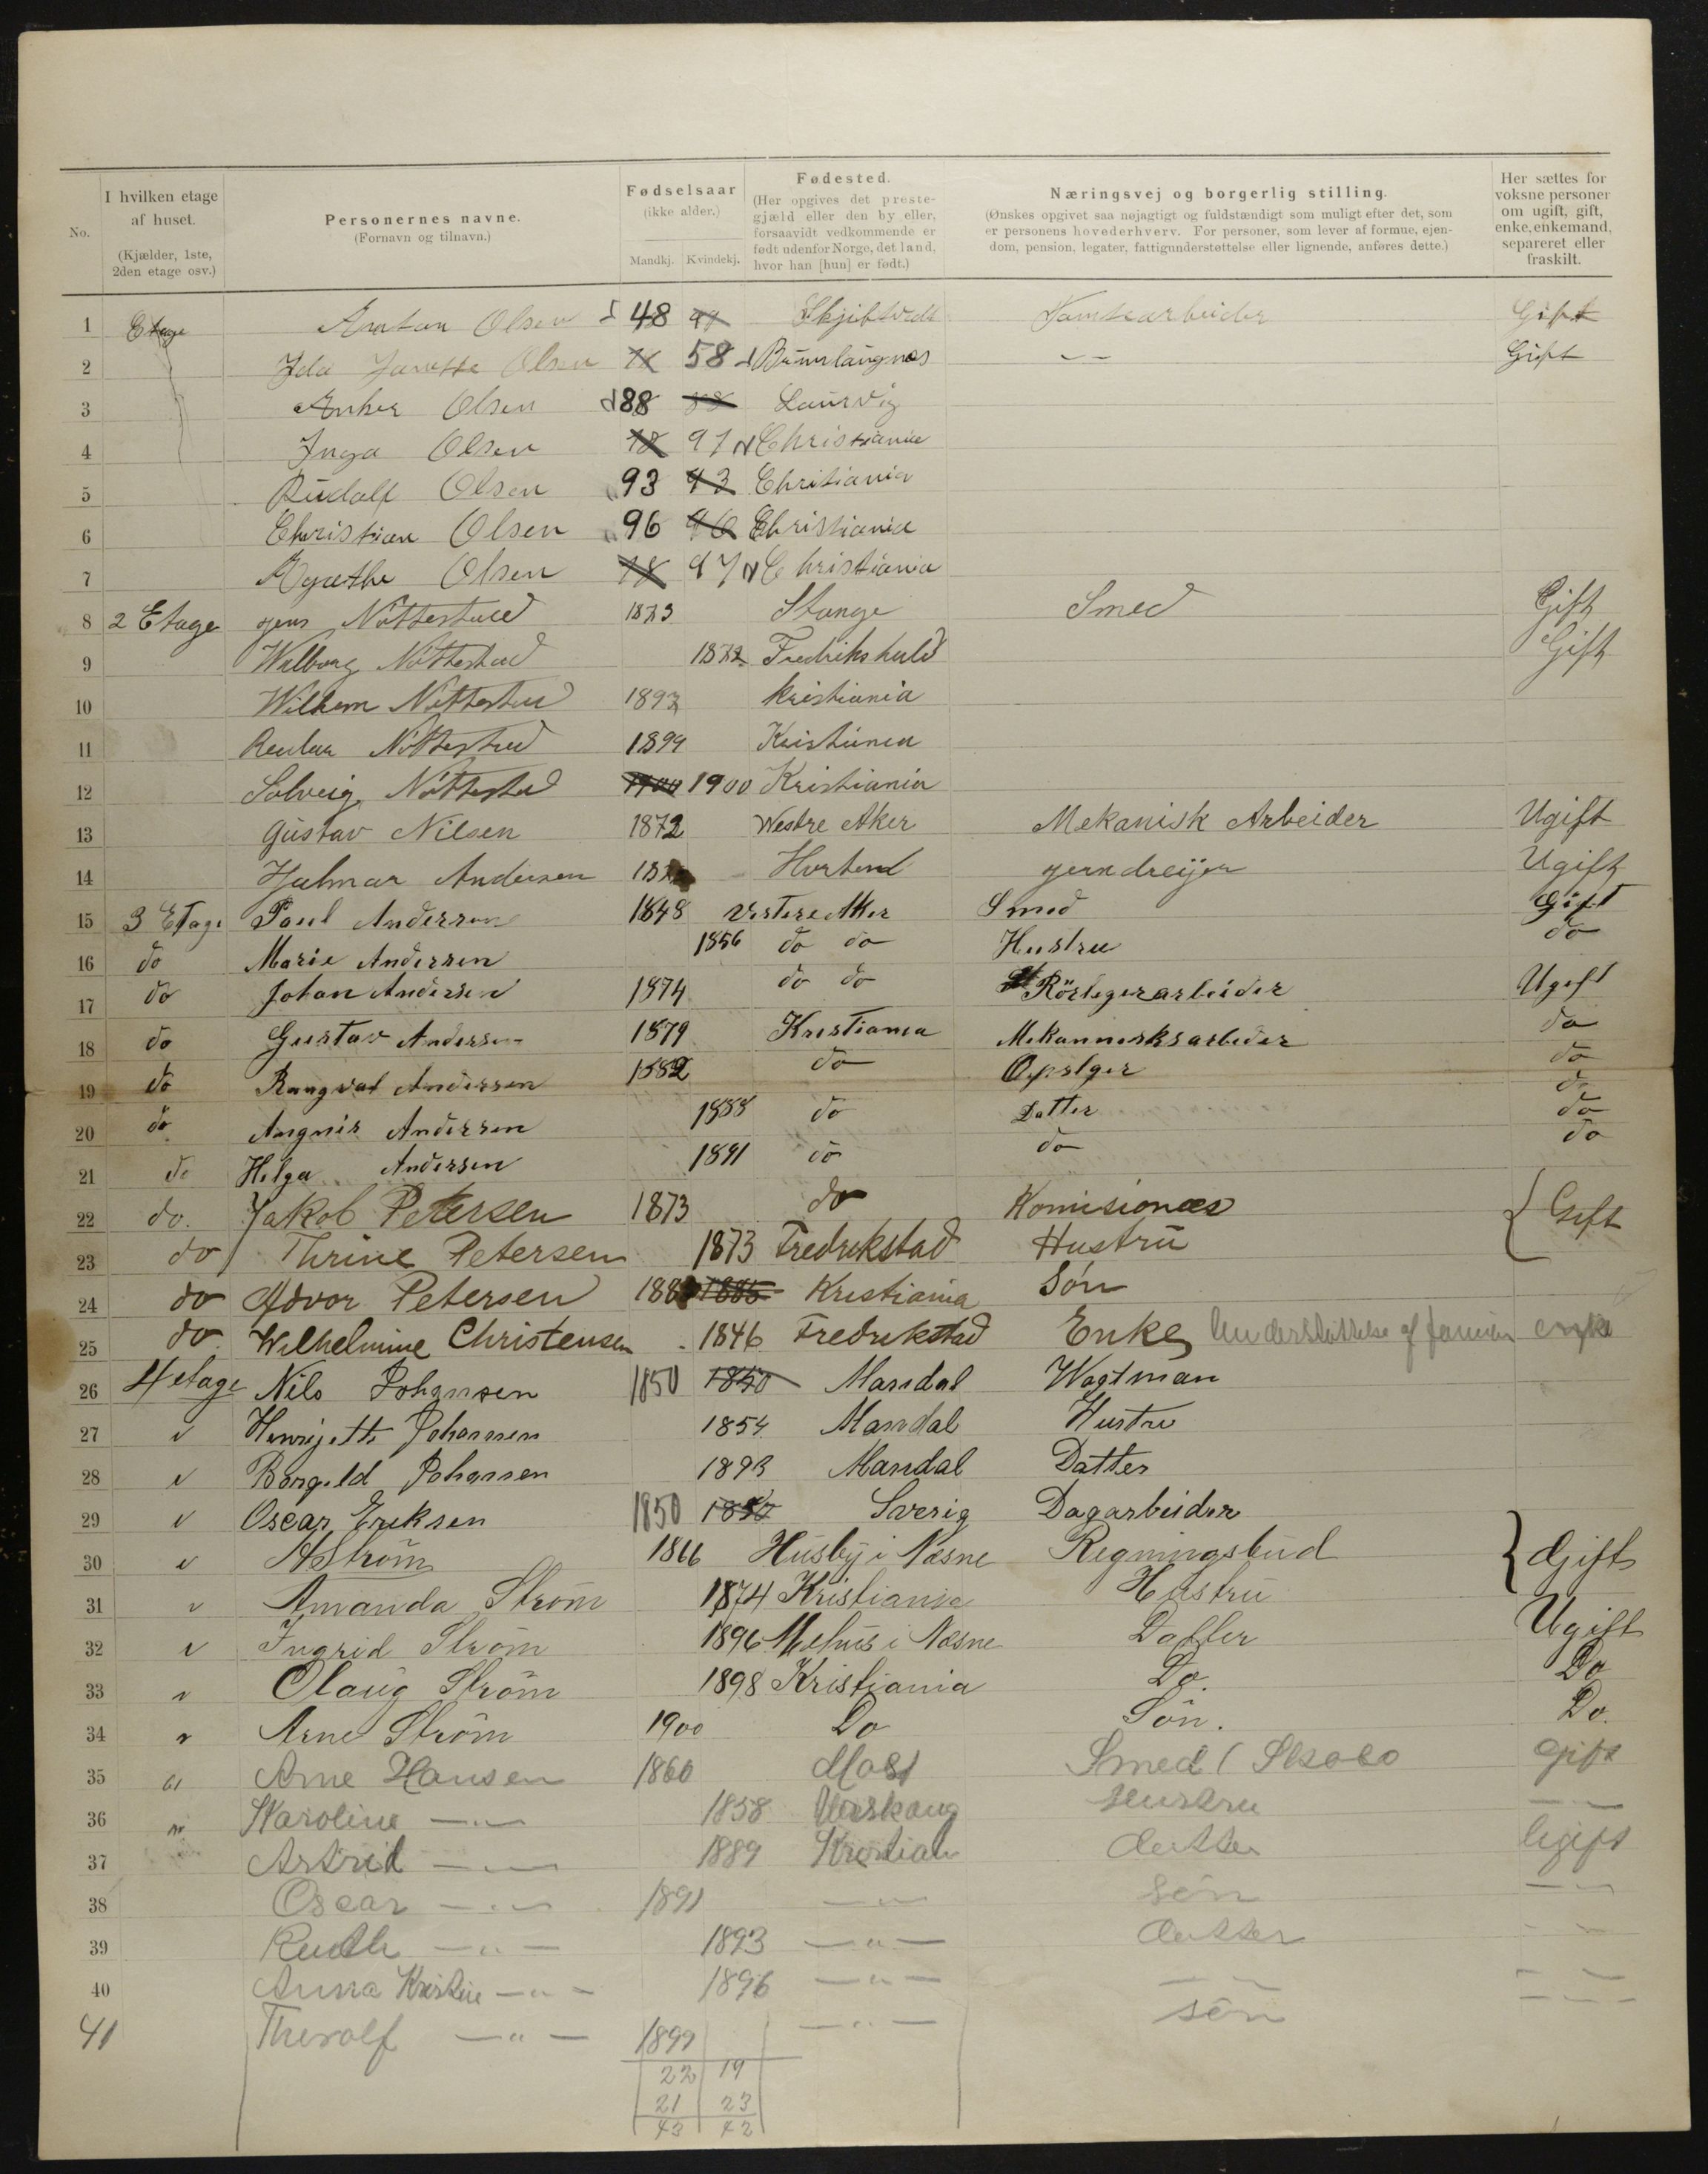 No.
I hvilken etage af huset.
(Kjælder, 1ste, 2den etage osv.)
Personernes navne.
(Fornavn og tilnavn.)
Fødselsaar
(ikke alder.)
Mandkj. Kvindekj.
Fødested.
(Her opgives det prestegjæld eller den by eller, forsaavidt vedkommende er født udenfor Norge, det land, hvor han [hun] er født.)
Næringsvej og borgerlig stilling.
(Ønskes opgivet saa nøjagtigt og fuldstændigt som muligt efter det, som er personens hovederhverv. For personer, som lever af formue, ejendom, pension, legater, fattigunderstøttelse eller lignende, anføres dette.)
Her sættes for voksne personer om ugift, gift, enke, enkemand, separeret eller fraskilt.
1 Etage Anton Olsen 48 Gift
2 Ida Olsen 58 Brunlaugnæs Gift
3 Anker Olsen 88 Laurvig
4 Inga Olsen 91 Christiania
5 Rudolf Olsen 93 Chritiania
6 Christian Olsen 96 Christiania
7 Agathe Olsen 97 Christiania
8 2 Etage Jens Nöttestad 1873 Stange Smed Gift
9 Walborg Nöttestad 1872 Fredrikshald Gift
10 Wilhem Nöttestad 1893 Kristiania
11 Nöttestad 1899 Kristiania
12 Solveig Nöttestad 1900 Kristiania
13 Gustav Nilsen 1872 Westre Aker Mekanisk Arbeider Ugift
14 Hjalmar Andersen Horten jerndreijer Ugift
15 3 Etage Paul Andersen 1848 Vestere Aker Smed Gift
16 do Marie Andersen 1856 do do Hustru do
17 do Johan Andersen 1874 do do Rörlegerarbeider Ugift
18 do Gustav Andersen 1879 Kristiania Mekannisksarbeder do
19 do Rangval Andersen 1882 do do
20 do Angnis Andersen 1888 do Datter do
21 do Helga Andersen 1891 do do do
22 do. Jakob Petersen 1873 do Komisionær Gift
23 do Thrine Petersen 1873 Fredrikstad Hustru
24 do Advor Petersen 1885 Kristiania Sön
25 do. Wilhelmine Christensen 1846 Fredrikstad Enke Understöttelse af familien enke
26 4 etage Nils Johansen 1850 1850 Mandal Wagtman
27 Henrijette Johansen 1854 Mandal Hustru
28 Borgild Johansen 1893 Mandal Datter
29 Oscar Eriksen 1850 1850 Sverig Dagarbeider
30 A Ström 1866 Husby i Næsne Regningsbud Gift
31 Amanda Ström 1874 Kristiania Hustru
32 Ingrid Ström 1896 Mehus i Næsne Datter Ugift
33 Olaug Ström 1898 Kristiania Do. Do
34 Arne Ström 1900 Do Sön. Do.
35 Arne Hansen 1860 Moss Smed gift
36 Karoline —"— 1858 Urskoug Hustru —"—
37 Astrid —"— 1889 Kristian datter Ugift
38 Oscar —"— 1891 —"— sön —"—
39 Ruth —"— 1893 —"— datter —"—
40 Anna Kristine —"— 1896 —"— —"— —"—
41 Thorolf —"— 1899 —"— sön —"—
22 19
21 23
43 42